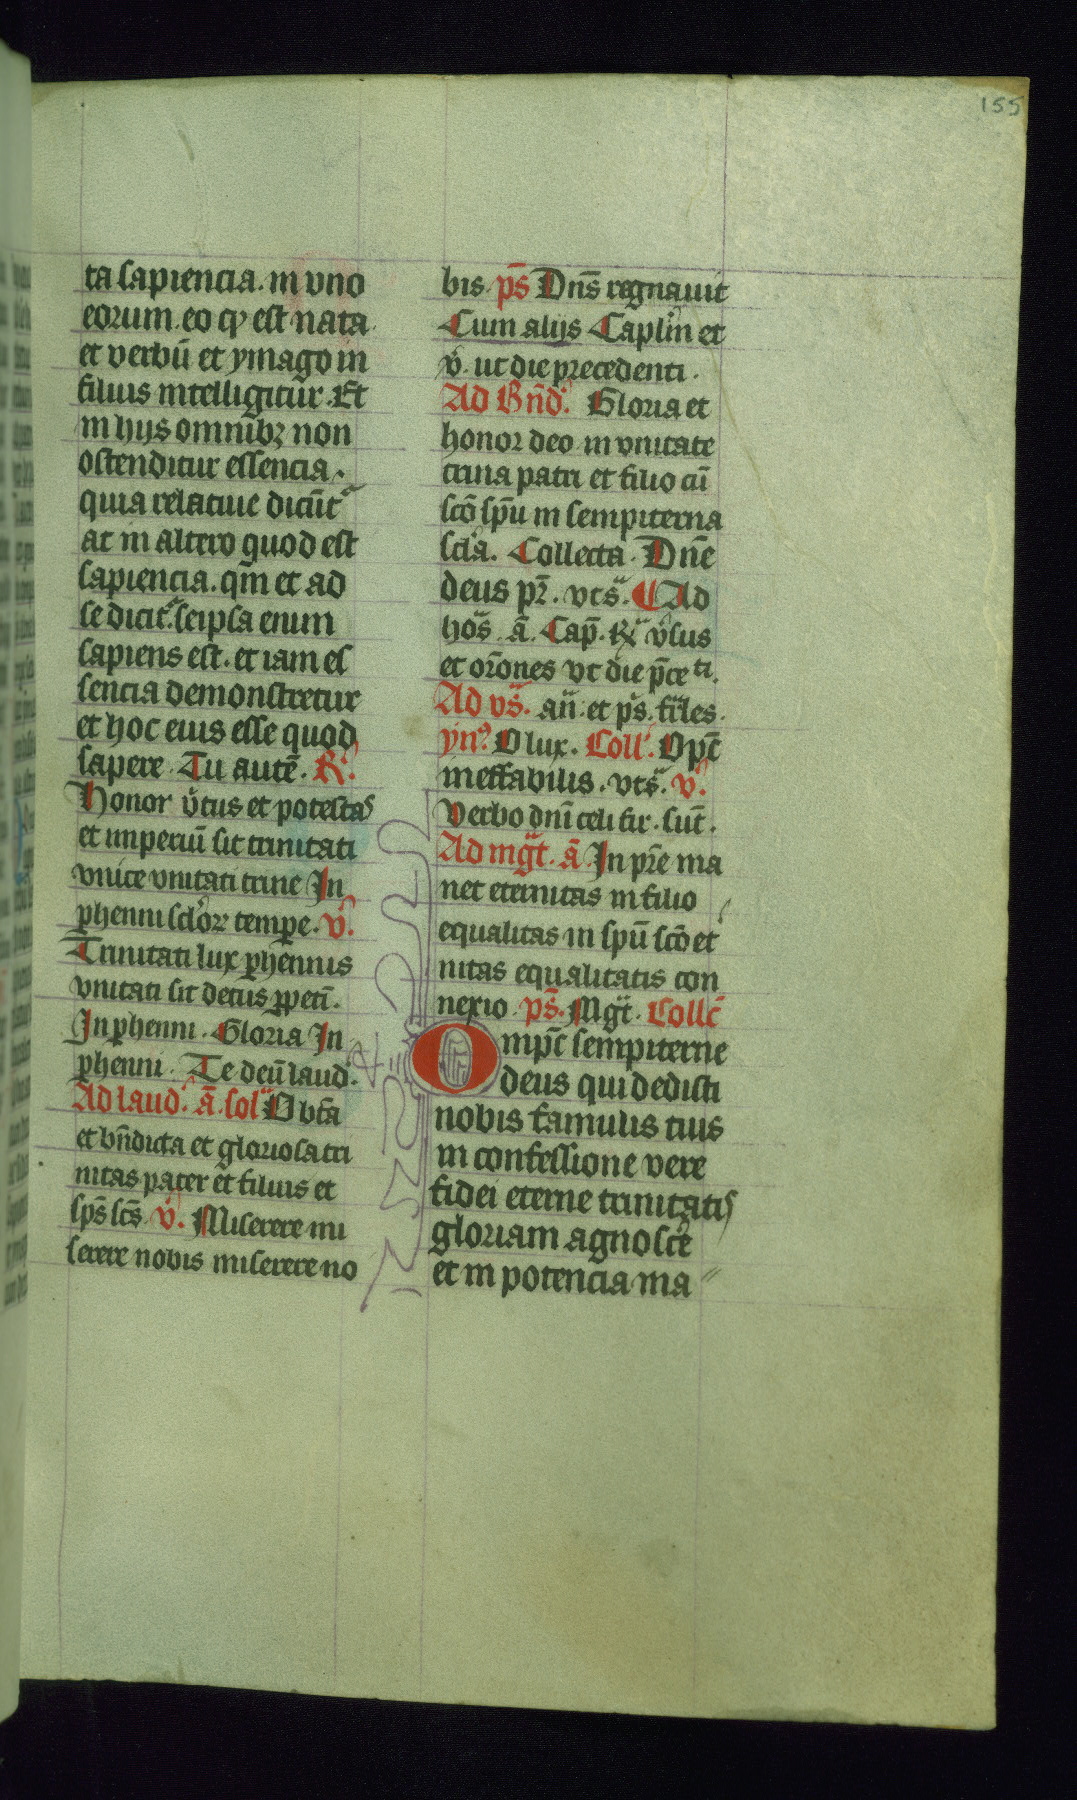 155
ta sapiencia. in vno
eorum. eo qꝫ est nata
et verbū et ymago in
filius intelligitur. Et
in hijs omnibꝫ non
ostenditur essencia.
quia relatiue dicūt᷑
at in altero quod est
sapiencia. qm̄ et ad
se dicit᷑. seipsa enim
sapiens est. et iam es
sencia demonstretur
et hoc eius esse quod
sapere. Tu autē. R̸.
Honor v̄tus et potestas
et imperiū sit trinitati
vnice vnitati trine In
ꝑhenni sclōꝝ tempe. v̄.
Trinitati lux ꝑhennis
vnitati sit decus ꝑpetī.
In ꝑhenni. Gloria In
ꝑhenni. Te deū laud.
Ad laud. ā. sol᷑ O btā
et bn̄dicta et gloriosa tri
nitas pater et filius et
sp̄s sc̄s v̄. Miserere mi
serere nobis miserere no
bis. ps̄ Dn̄s regnauit
Cum alijs Capl̄m et
v̄. ut die precedenti.
Ad Bn̄d. Gloria et
honor deo in vnitate
trina patri et filio cū
sc̄o sp̄u in sempiterna
scl̄a. Collecta. Dn̄e
deus pr̄. vts᷑. ¶ Ad
ho᷑s. ā. Cap̄. R̸ v̄sus
et or̄ones vt die p̄ce ti.
Ad vs̄. an̄. et ps̄. fi᷑les.
yn̄. O lux. Coll᷑. Opc̄
ineffabilis. vts᷑. v̄.
Verbo dn̄i celi fir. sūt.
Ad mḡt. ā. In pr̄e ma
net eternitas in filio
equalitas in sp̄u sc̄o et
nitas equalitatis con
nexio. ps̄. Mḡt. Collc̄
Ompc̄ sempiterne
deus qui dedisti
nobis famulis tuis
in confessione vere
fidei eterne trinitatis
gloriam agnosc̄e
et in potencia ma